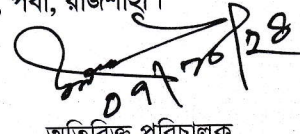 , পবা, রাজশাহী।
০৭/১০/২৪
অতিরিক্ত পরিচালক